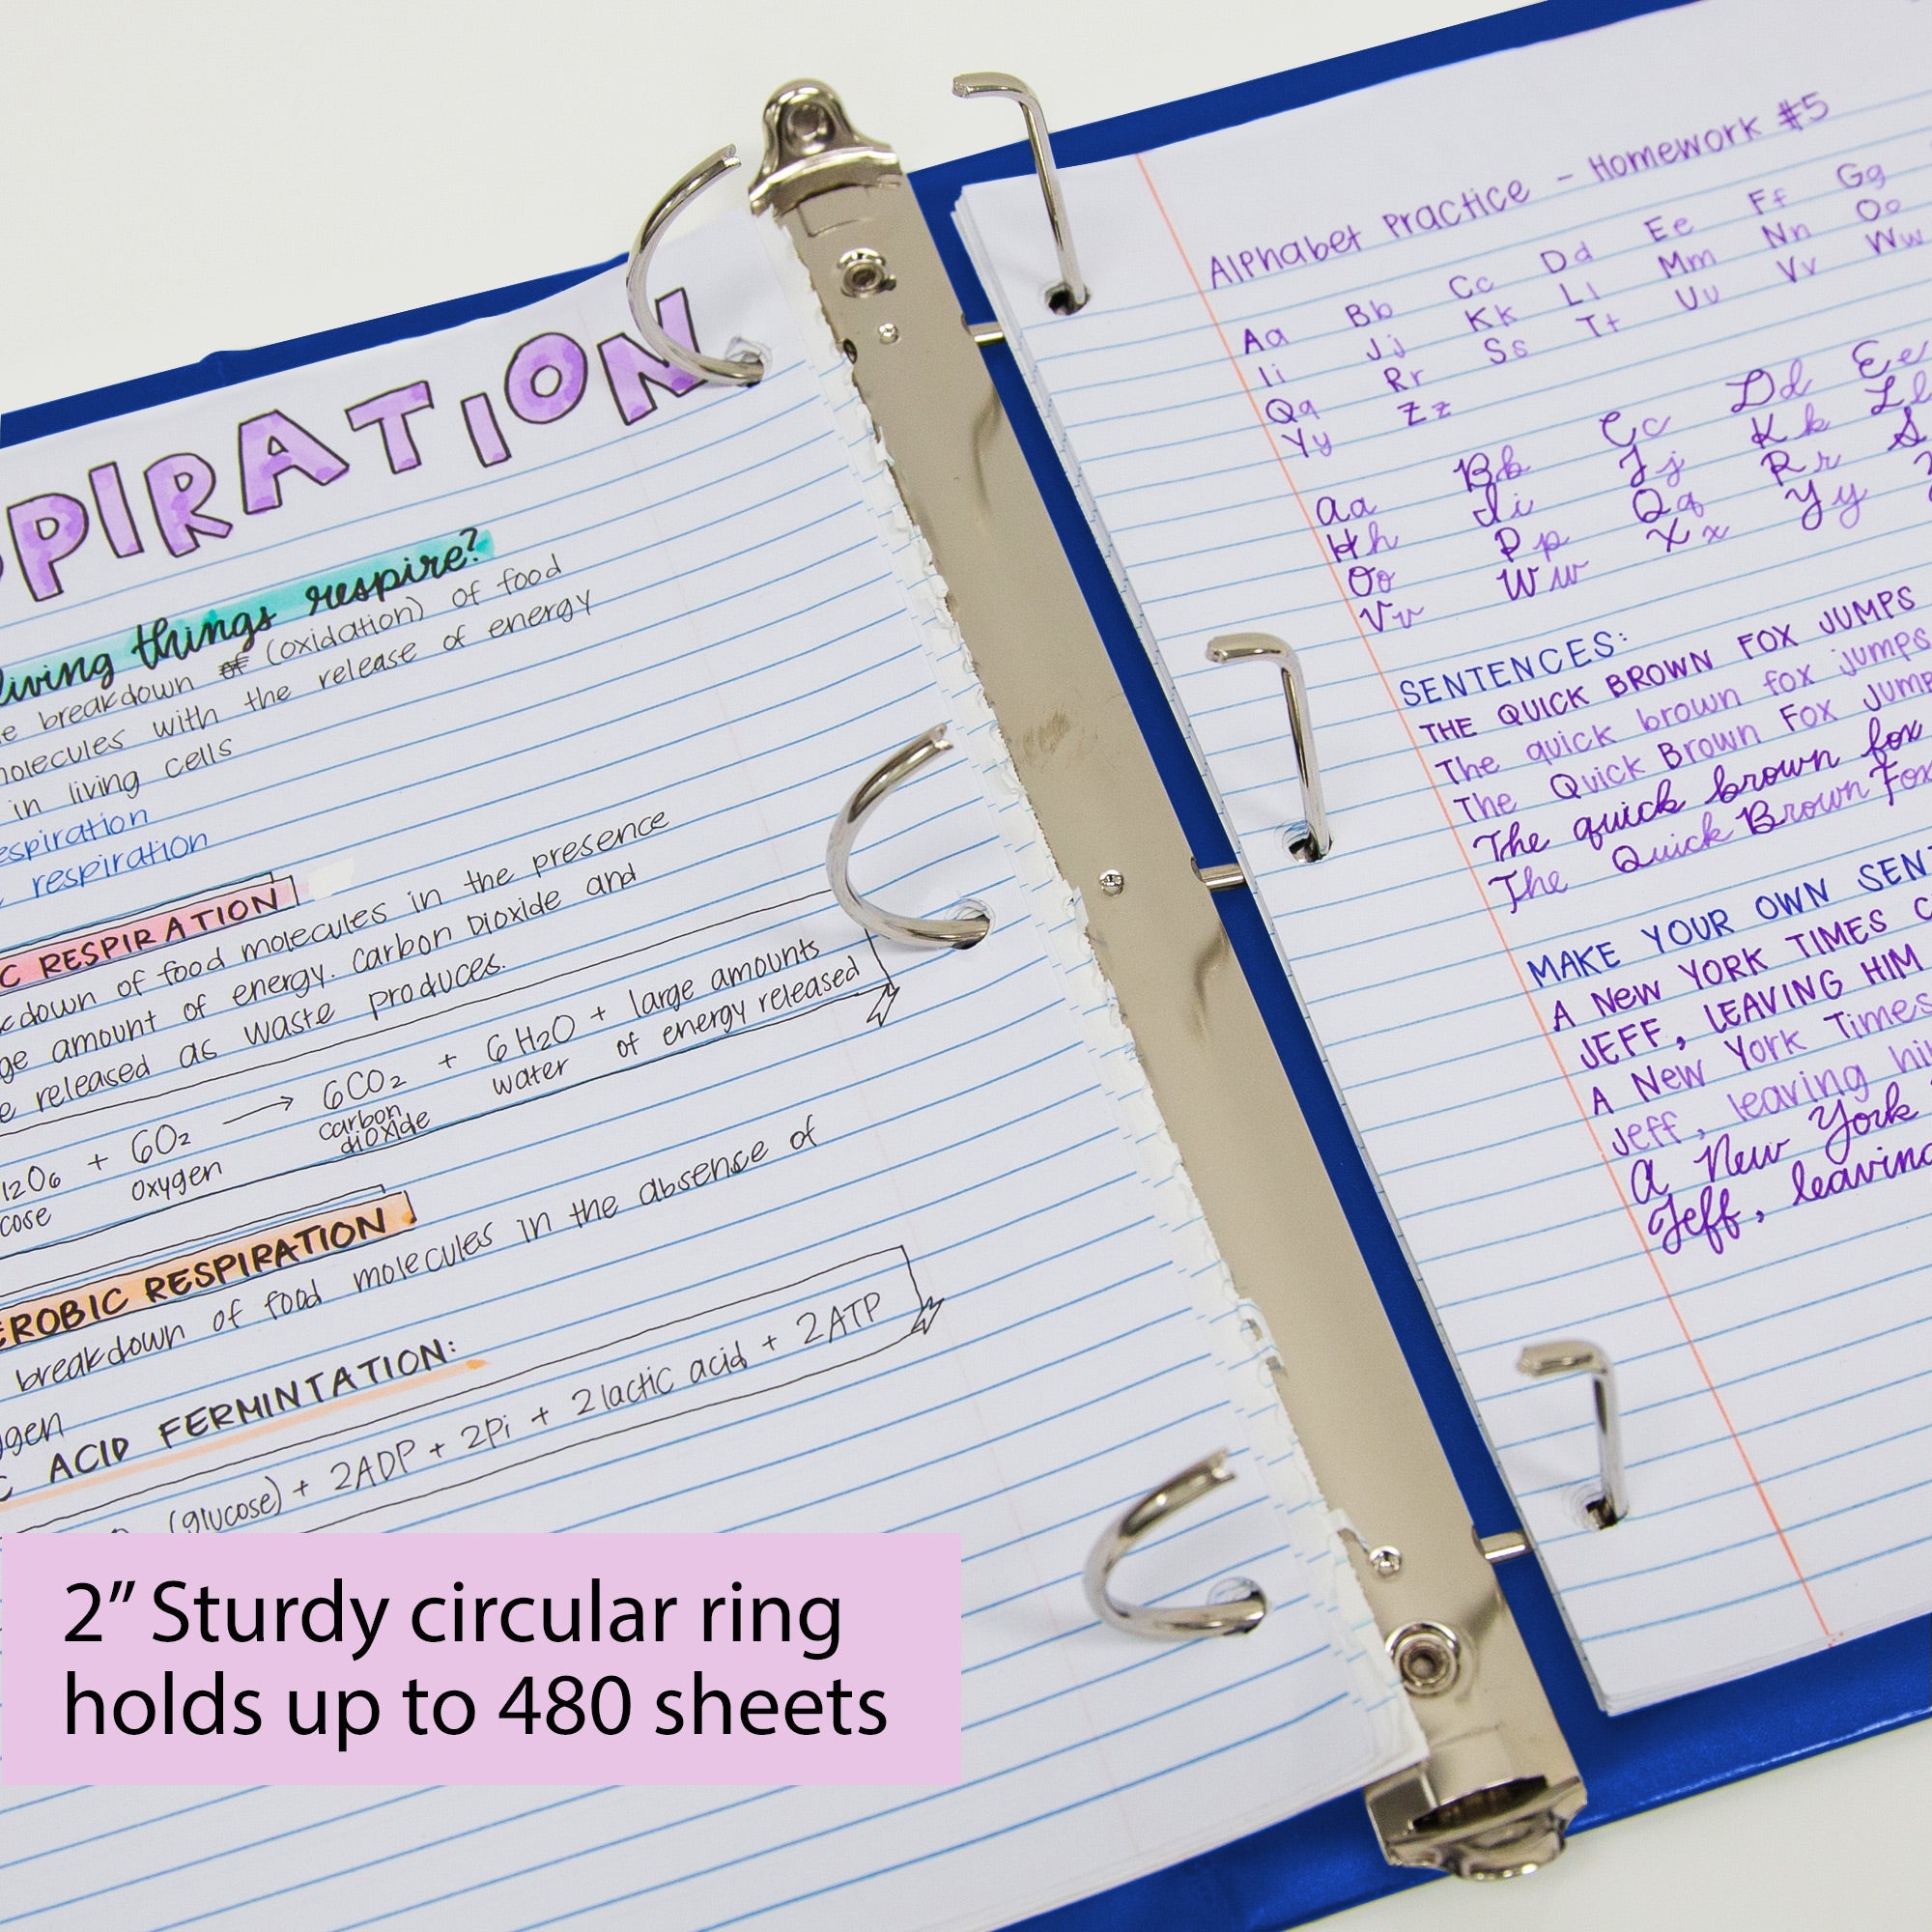 PIRATION
living things respire?
breakdown of (oxidation) of food
molecules with the release of energy
in living cells
respiration
respiration
C RESPIRATION
kdown of food molecules in the presence
ge amount of energy. Carbon Dioxide and
e released as waste produces.
12O6 + 6O2 → 6CO2 + 6H2O + large amounts
cose oxygen carbon dioxide water of energy released
EROBIC RESPIRATION
breakdown of food molecules in the absence of
ygen
C ACID FERMINTATION:
(glucose) + 2ADP + 2Pi + 2lactic acid + 2ATP
2” Sturdy circular ring
holds up to 480 sheets
Alphabet Practice - Homework #5
Aa Bb Cc Dd Ee Ff Gg
Ii Jj Kk Ll Mm Nn Oo
Qq Rr Ss Tt Uu Vv Ww
Yy Zz
Aa Bb Cc Dd Ee
Hh Ii Jj Kk Ll
Oo Pp Qq Rr S
Vv Ww Xx Yy
SENTENCES:
THE QUICK BROWN FOX JUMPS
The quick brown fox jumps
The Quick Brown Fox Jump
The quick brown fox
The Quick Brown Fox
MAKE YOUR OWN SENT
A NEW YORK TIMES C
JEFF, LEAVING HIM
A New York Times
Jeff, leaving hi
A New York
Jeff, leaving